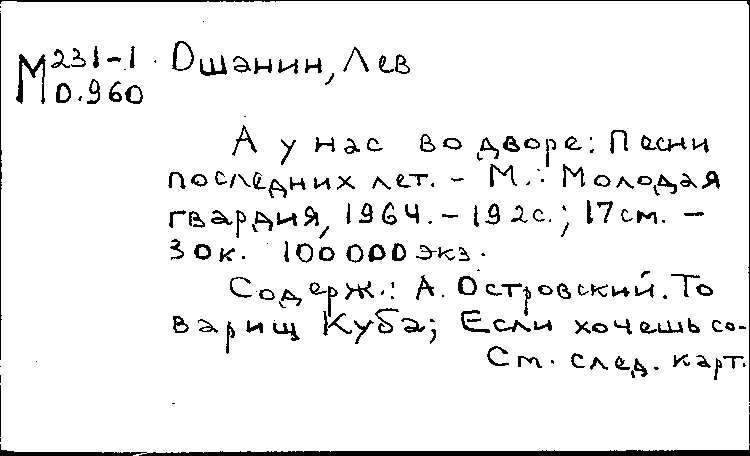 М 231-1 Ошанин, Лев
О.960
А у нас во дворе: Песни
последних лет. - М.: Молодая
гвардия, 1964. - 192с.; 17см. -
30к. 100 000 экз.
Содерж.: А. Островский. То
варищ Куба; Если хочешь со-
См. след. карт.